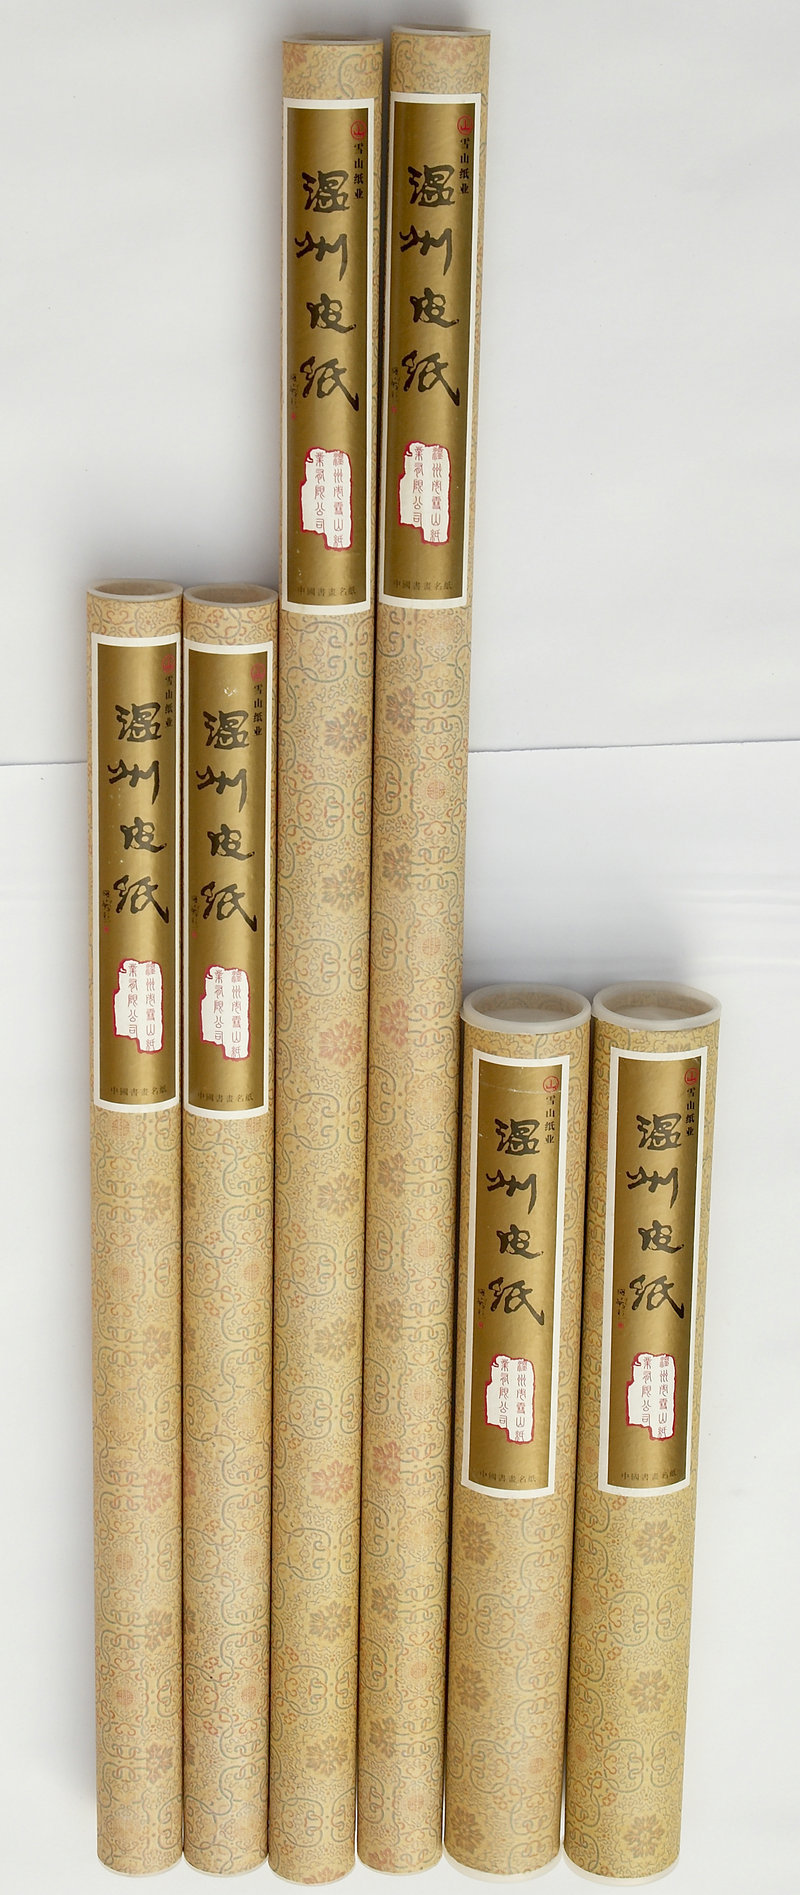 雪山纸业
温州皮纸
温州市雪山紙
業有限公司
中國書畫名紙
雪山纸业
温州皮纸
温州市雪山紙
業有限公司
中國書畫名紙
雪山纸业
温州皮纸
温州市雪山紙
業有限公司
中國書畫名紙
雪山纸业
温州皮纸
温州市雪山紙
業有限公司
中國書畫名紙
雪山纸业
温州皮纸
温州市雪山紙
業有限公司
中國書畫名紙
雪山纸业
温州皮纸
温州市雪山紙
業有限公司
中國書畫名紙